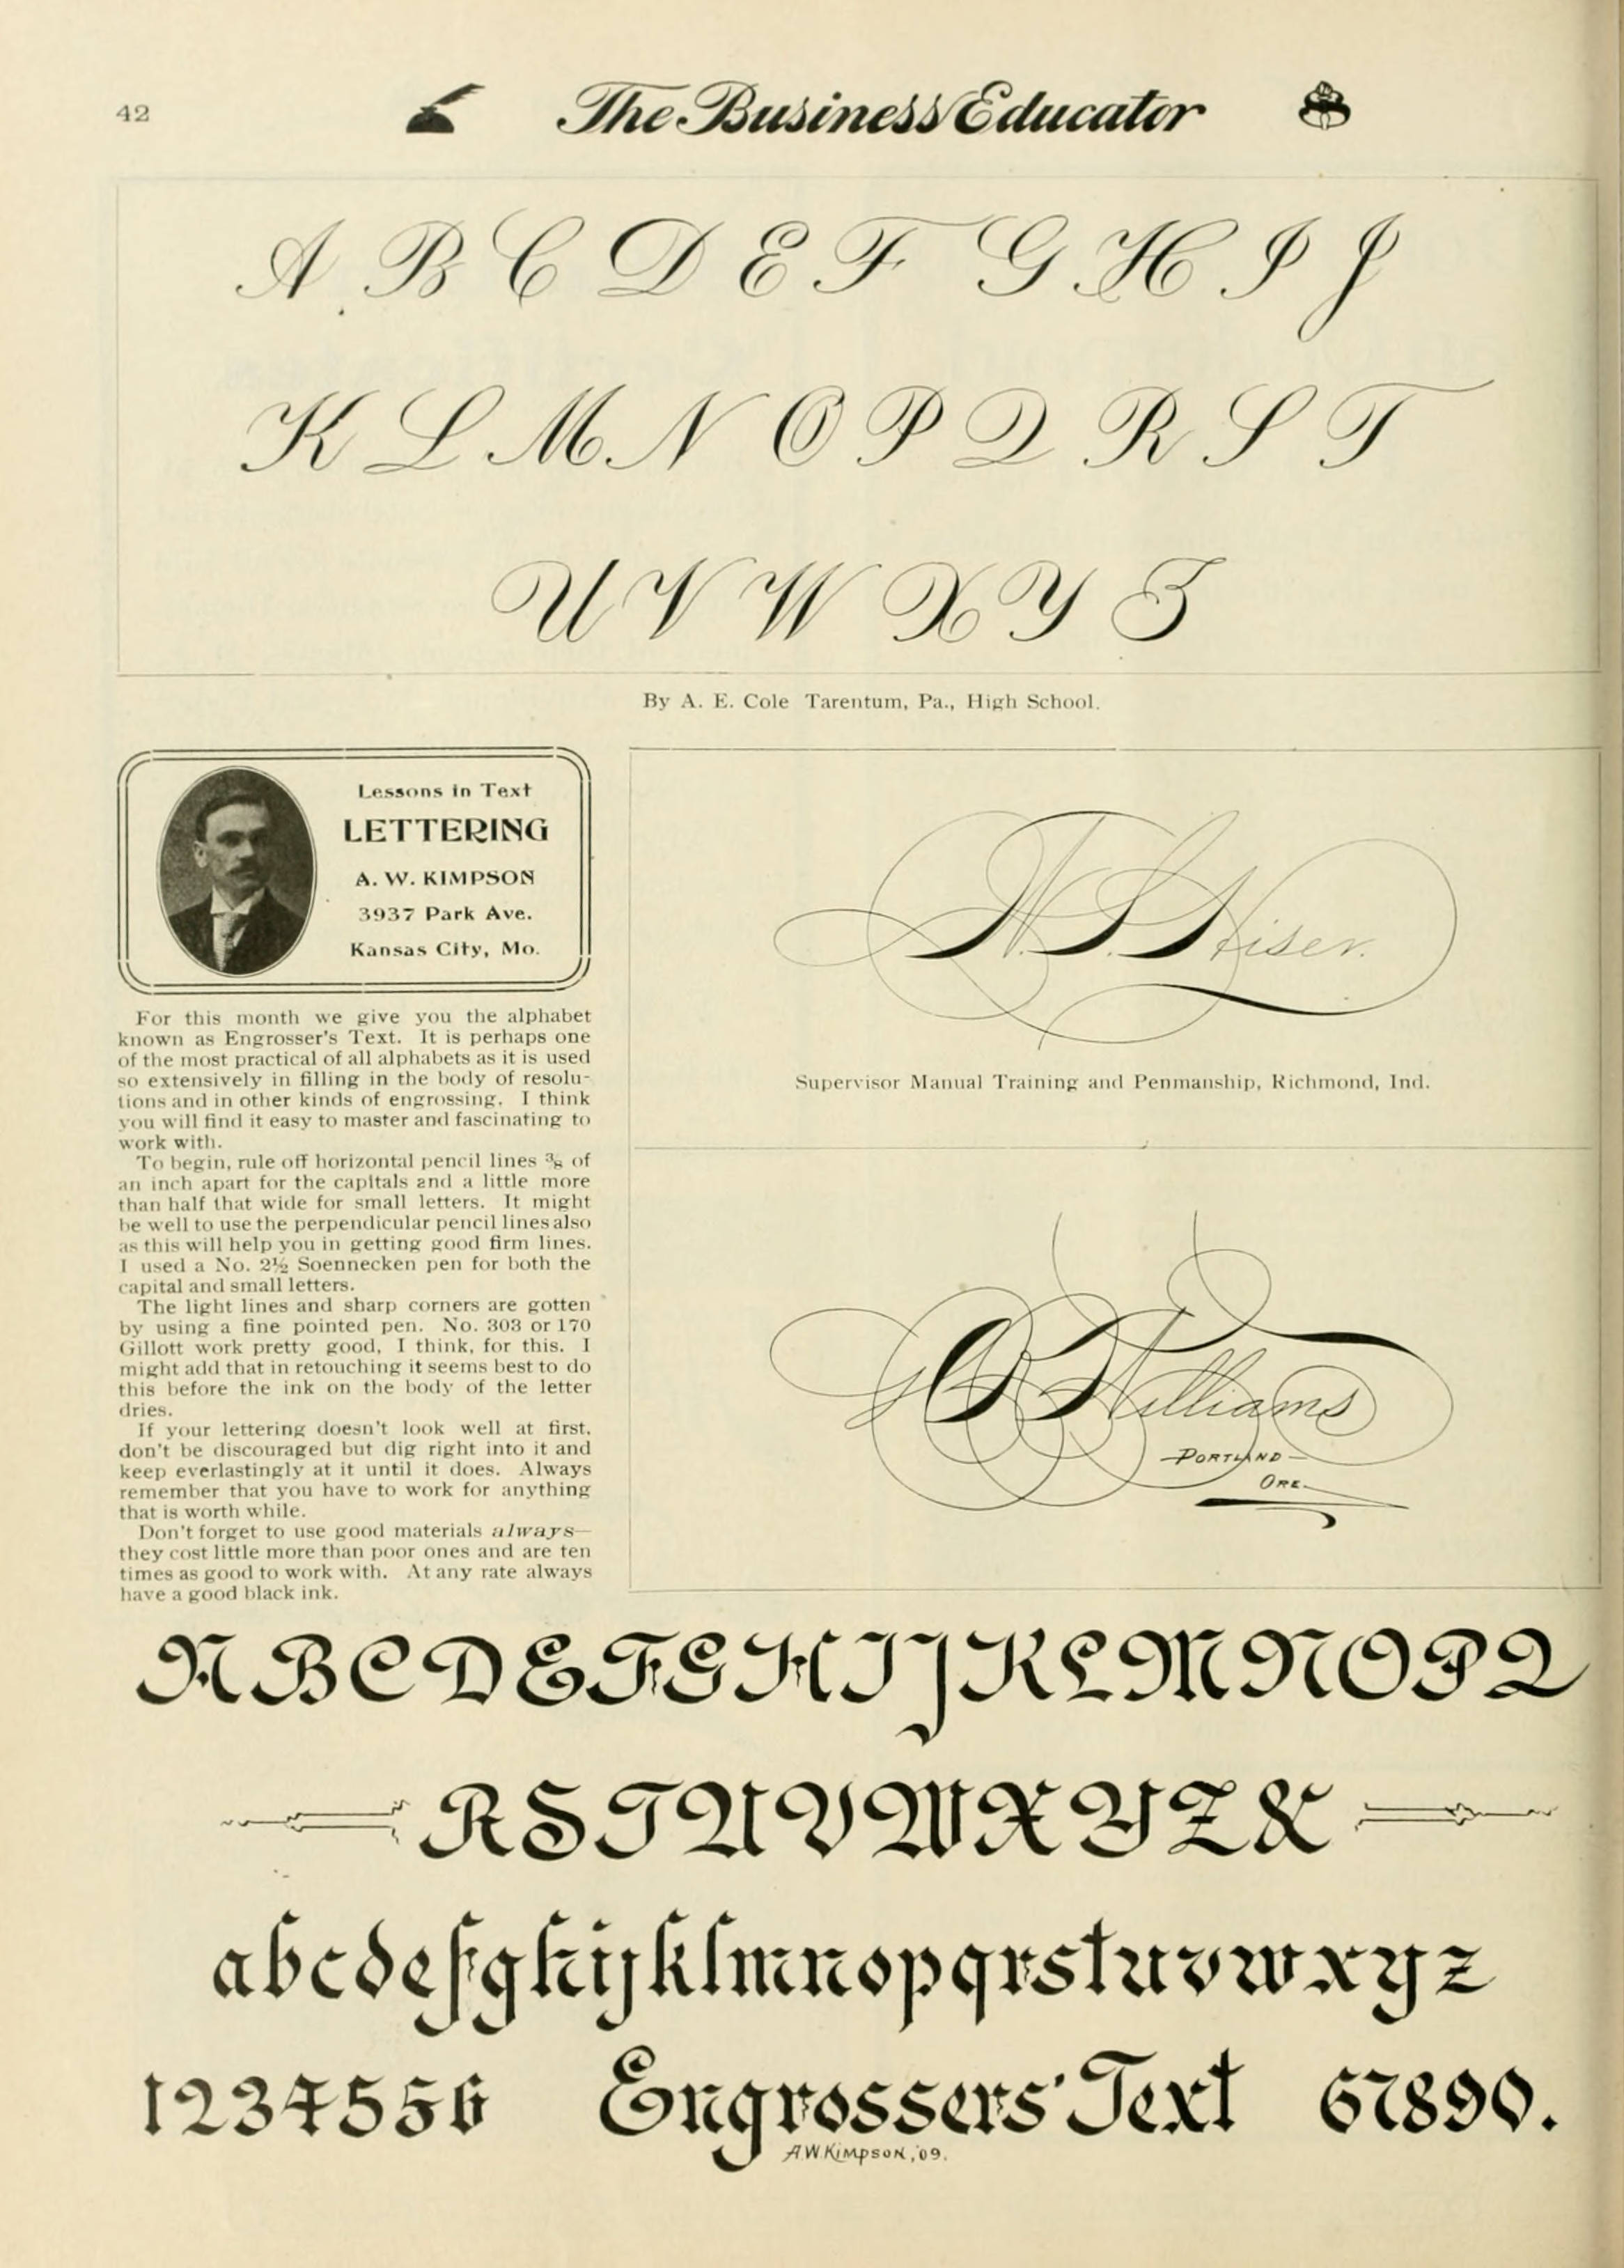 42
The Business Educator
A B C D E F G H I J
K L M N O P Q R S T
U V W X Y Z
By A. E. Cole Tarentum, Pa., High School.
Lessons in Text
LETTERING
A. W. KIMPSON
3937 Park Ave.
Kansas City, Mo.
For this month we give you the alphabet
known as Engrosser's Text. It is perhaps one
of the most practical of all alphabets as it is used
so extensively in filling in the body of resolu-
tions and in other kinds of engrossing. I think
you will find it easy to master and fascinating to
work with.
To begin, rule off horizontal pencil lines ⅜ of
an inch apart for the capitals and a little more
than half that wide for small letters. It might
be well to use the perpendicular pencil lines also
as this will help you in getting good firm lines.
I used a No. 2½ Soennecken pen for both the
capital and small letters.
The light lines and sharp corners are gotten
by using a fine pointed pen. No. 303 or 170
Gillott work pretty good, I think, for this. I
might add that in retouching it seems best to do
this before the ink on the body of the letter
dries.
If your lettering doesn't look well at first,
don't be discouraged but dig right into it and
keep everlastingly at it until it does. Always
remember that you have to work for anything
that is worth while.
Don't forget to use good materials always—
they cost little more than poor ones and are ten
times as good to work with. At any rate always
have a good black ink.
Hiser.
Supervisor Manual Training and Penmanship, Richmond, Ind.
Williams
PORTLAND
ORE.
A B C D E F G H I J K L M N O P Q
R S T U V W X Y Z &
a b c d e f g h i j k l m n o p q r s t u v w x y z
1 2 3 4 5 5 6 Engrossers' Text 6 7 8 9 0.
A.W. KIMPSON, '09.